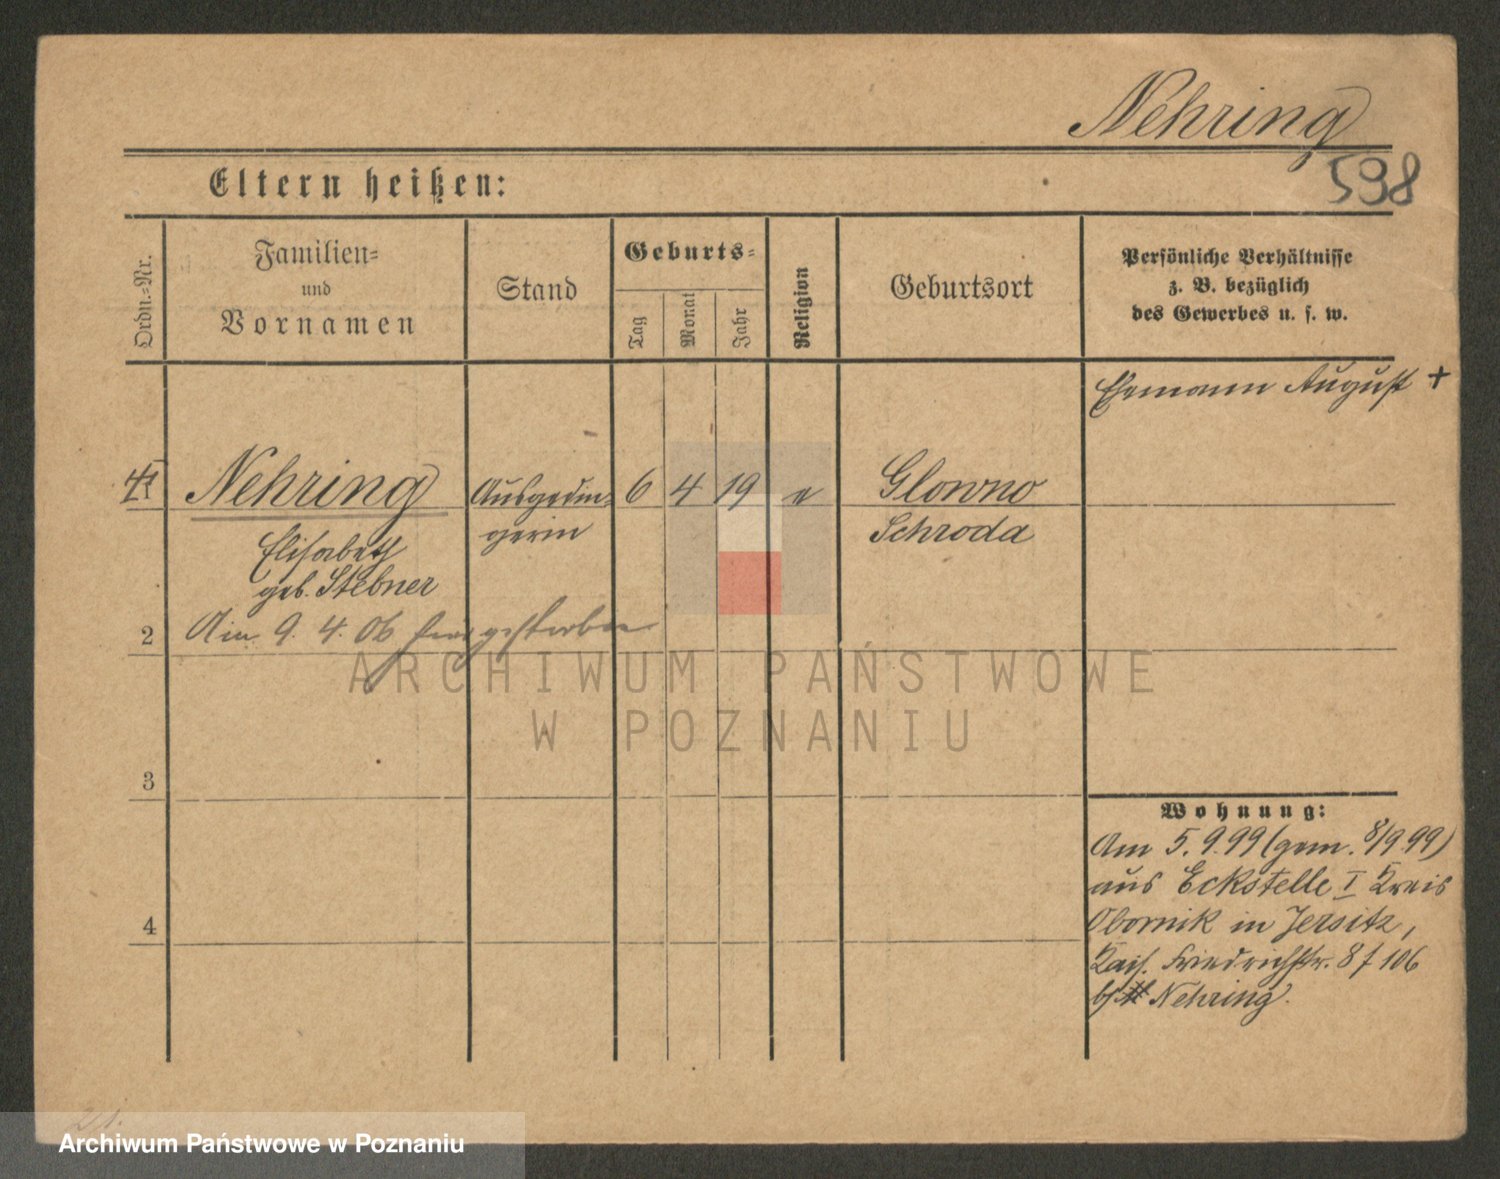 Nehring
598
Eltern heißen:
Ordn.-Nr.
Familien-
und
Vornamen
Stand
Geburts-
Tag
Monat
Jahr
Religion
Geburtsort
Persönliche Verhältnisse
z. B. bezüglich
des Gewerbes u. s. w.
Ehemann August +
Nehring Ausgedin- 6 4 19 e Glowno
Elisabeth gerin Schroda
geb. Stebner
2 Am 9. 4. 06 hier gestorben
3
4
Wohnung:
Am 5. 9. 99 (gem. 8/9 99)
aus Eckstelle I Kreis
Obornik in Jersitz,
Kais. Friedrichstr. 8 f 106
Nehring.
ARCHIWUM PAŃSTWOWE
W POZNANIU
Archiwum Państwowe w Poznaniu